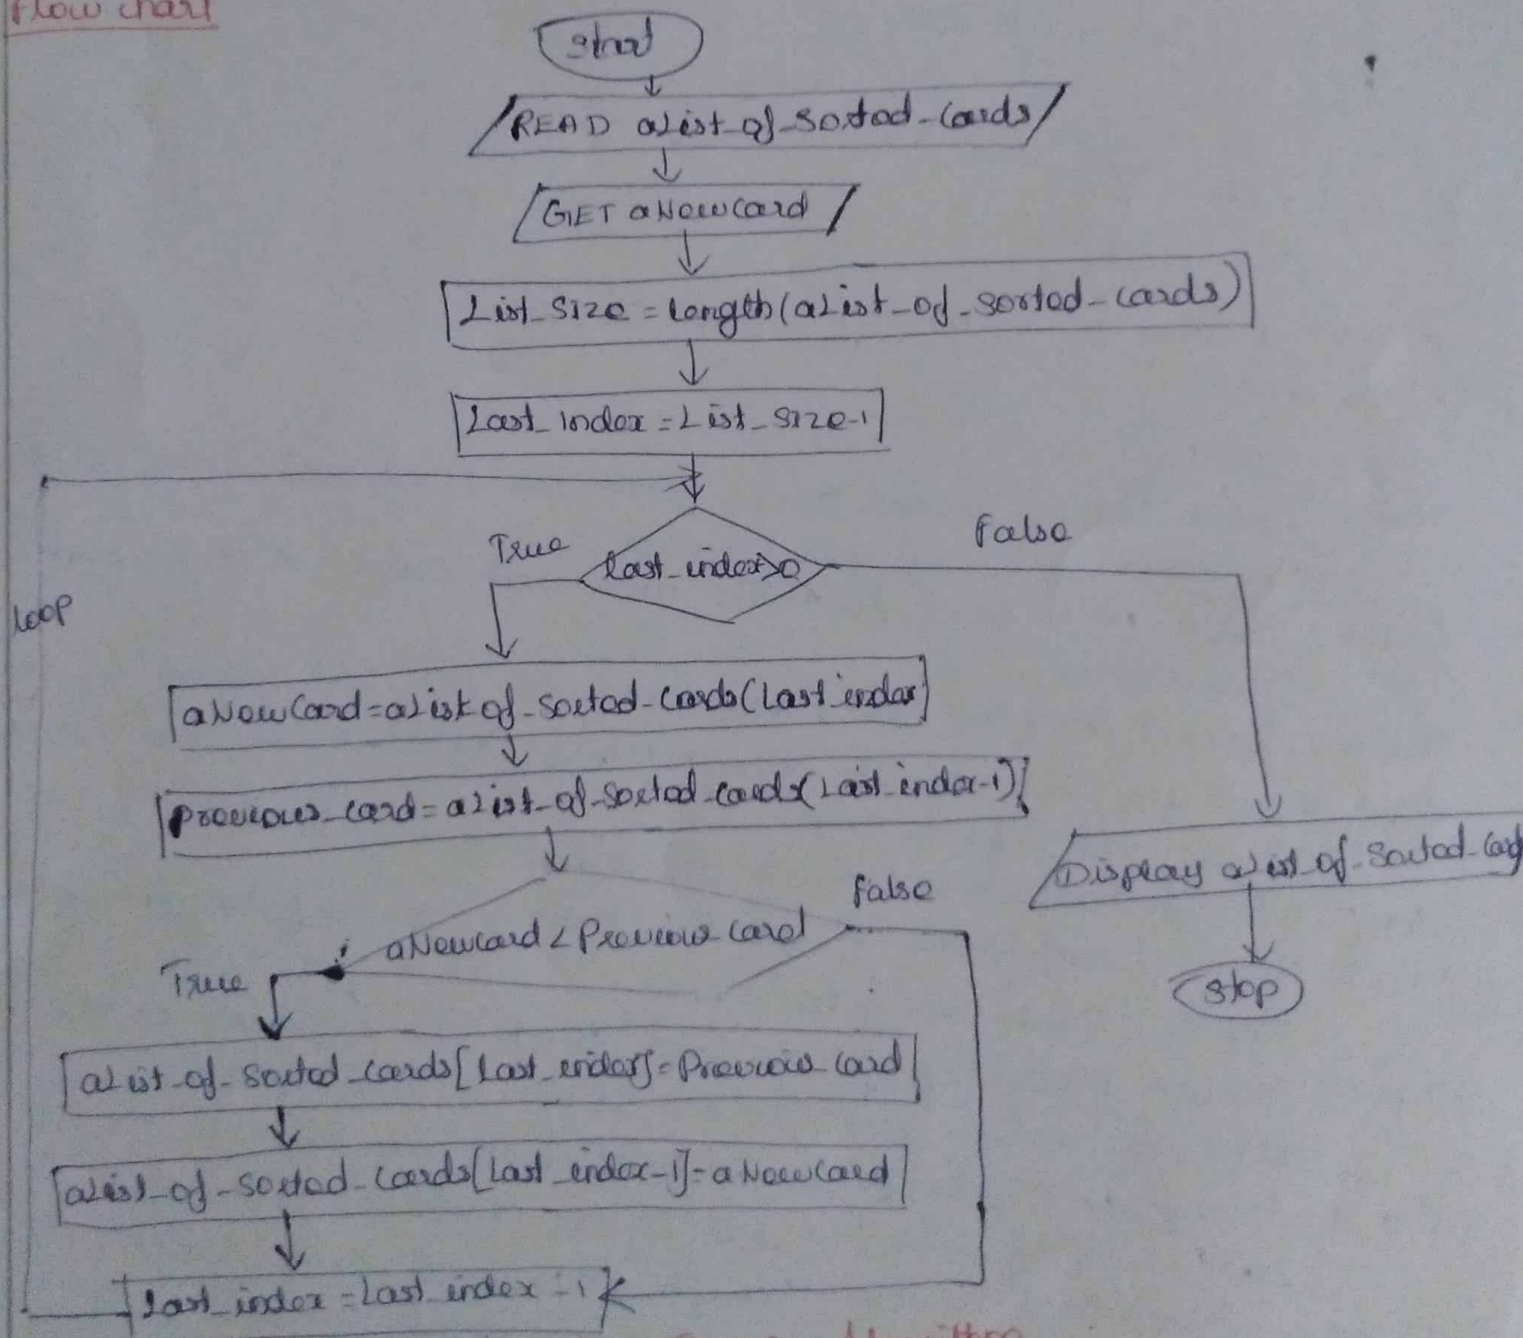 Flow chart
Start
READ aList_of_Sorted_Cards
GET aNewCard
List_Size = Length(aList_of_sorted_cards)
Last_Index = List_Size-1
True
last_index>0
False
Loop
aNewCard = aList of_sorted_Cards(Last_index]
Previous_card = aList_of_sorted_cards(Last_index-1)]
False
aNewcard < Previous Card
True
Display aList_of_Sorted_Card
Stop
aList_of_Sorted_cards[Last_index] = Previous Card
aList_of_sorted_Cards[Last_index-1] = aNewCard
Last_index = Last_index -1